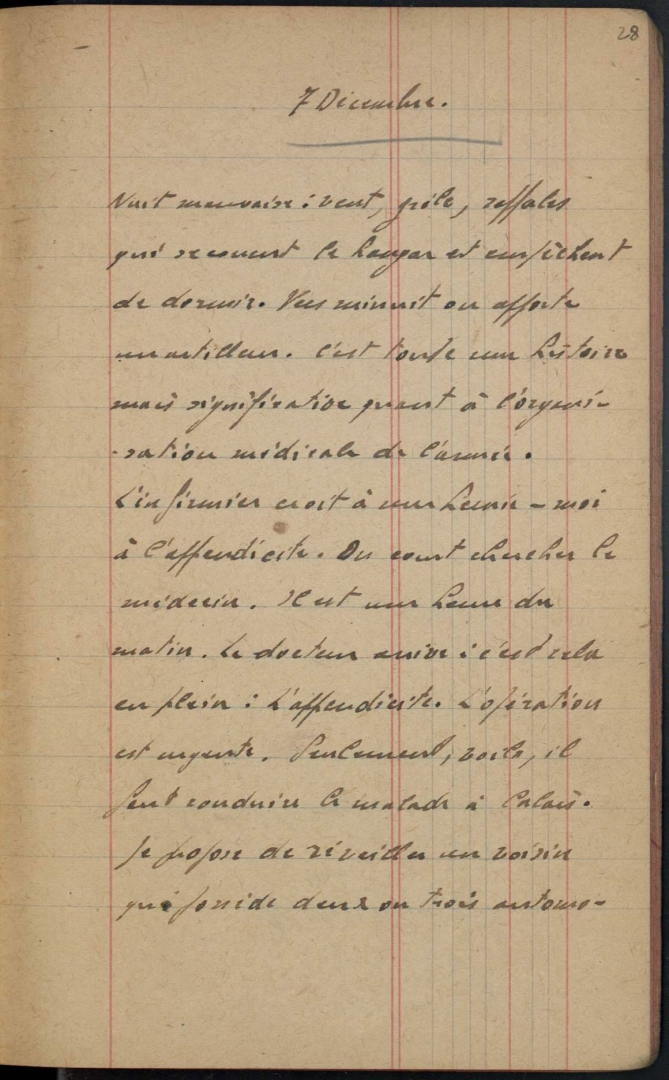 28
7 Décembre.
Nuit mauvaise : vent, grêle, raffales
qui secouent le hangar et empêchent
de dormir. Vers minuit on apporte
un artilleur. C'est toute une histoire
mais significative quant à l'organi-
-sation médicale de l'armée.
L'infirmier croit à une hernie – moi
à l'appendicite. On court chercher le
médecin. Il est une heure du
matin. Le docteur arrive : c'est cela
en plein : L'appendicite. L'opération
est urgente. Seulement, voilà, il
faut conduire le malade à Calais.
Je propose de réveiller un voisin
qui possède deux ou trois automo-